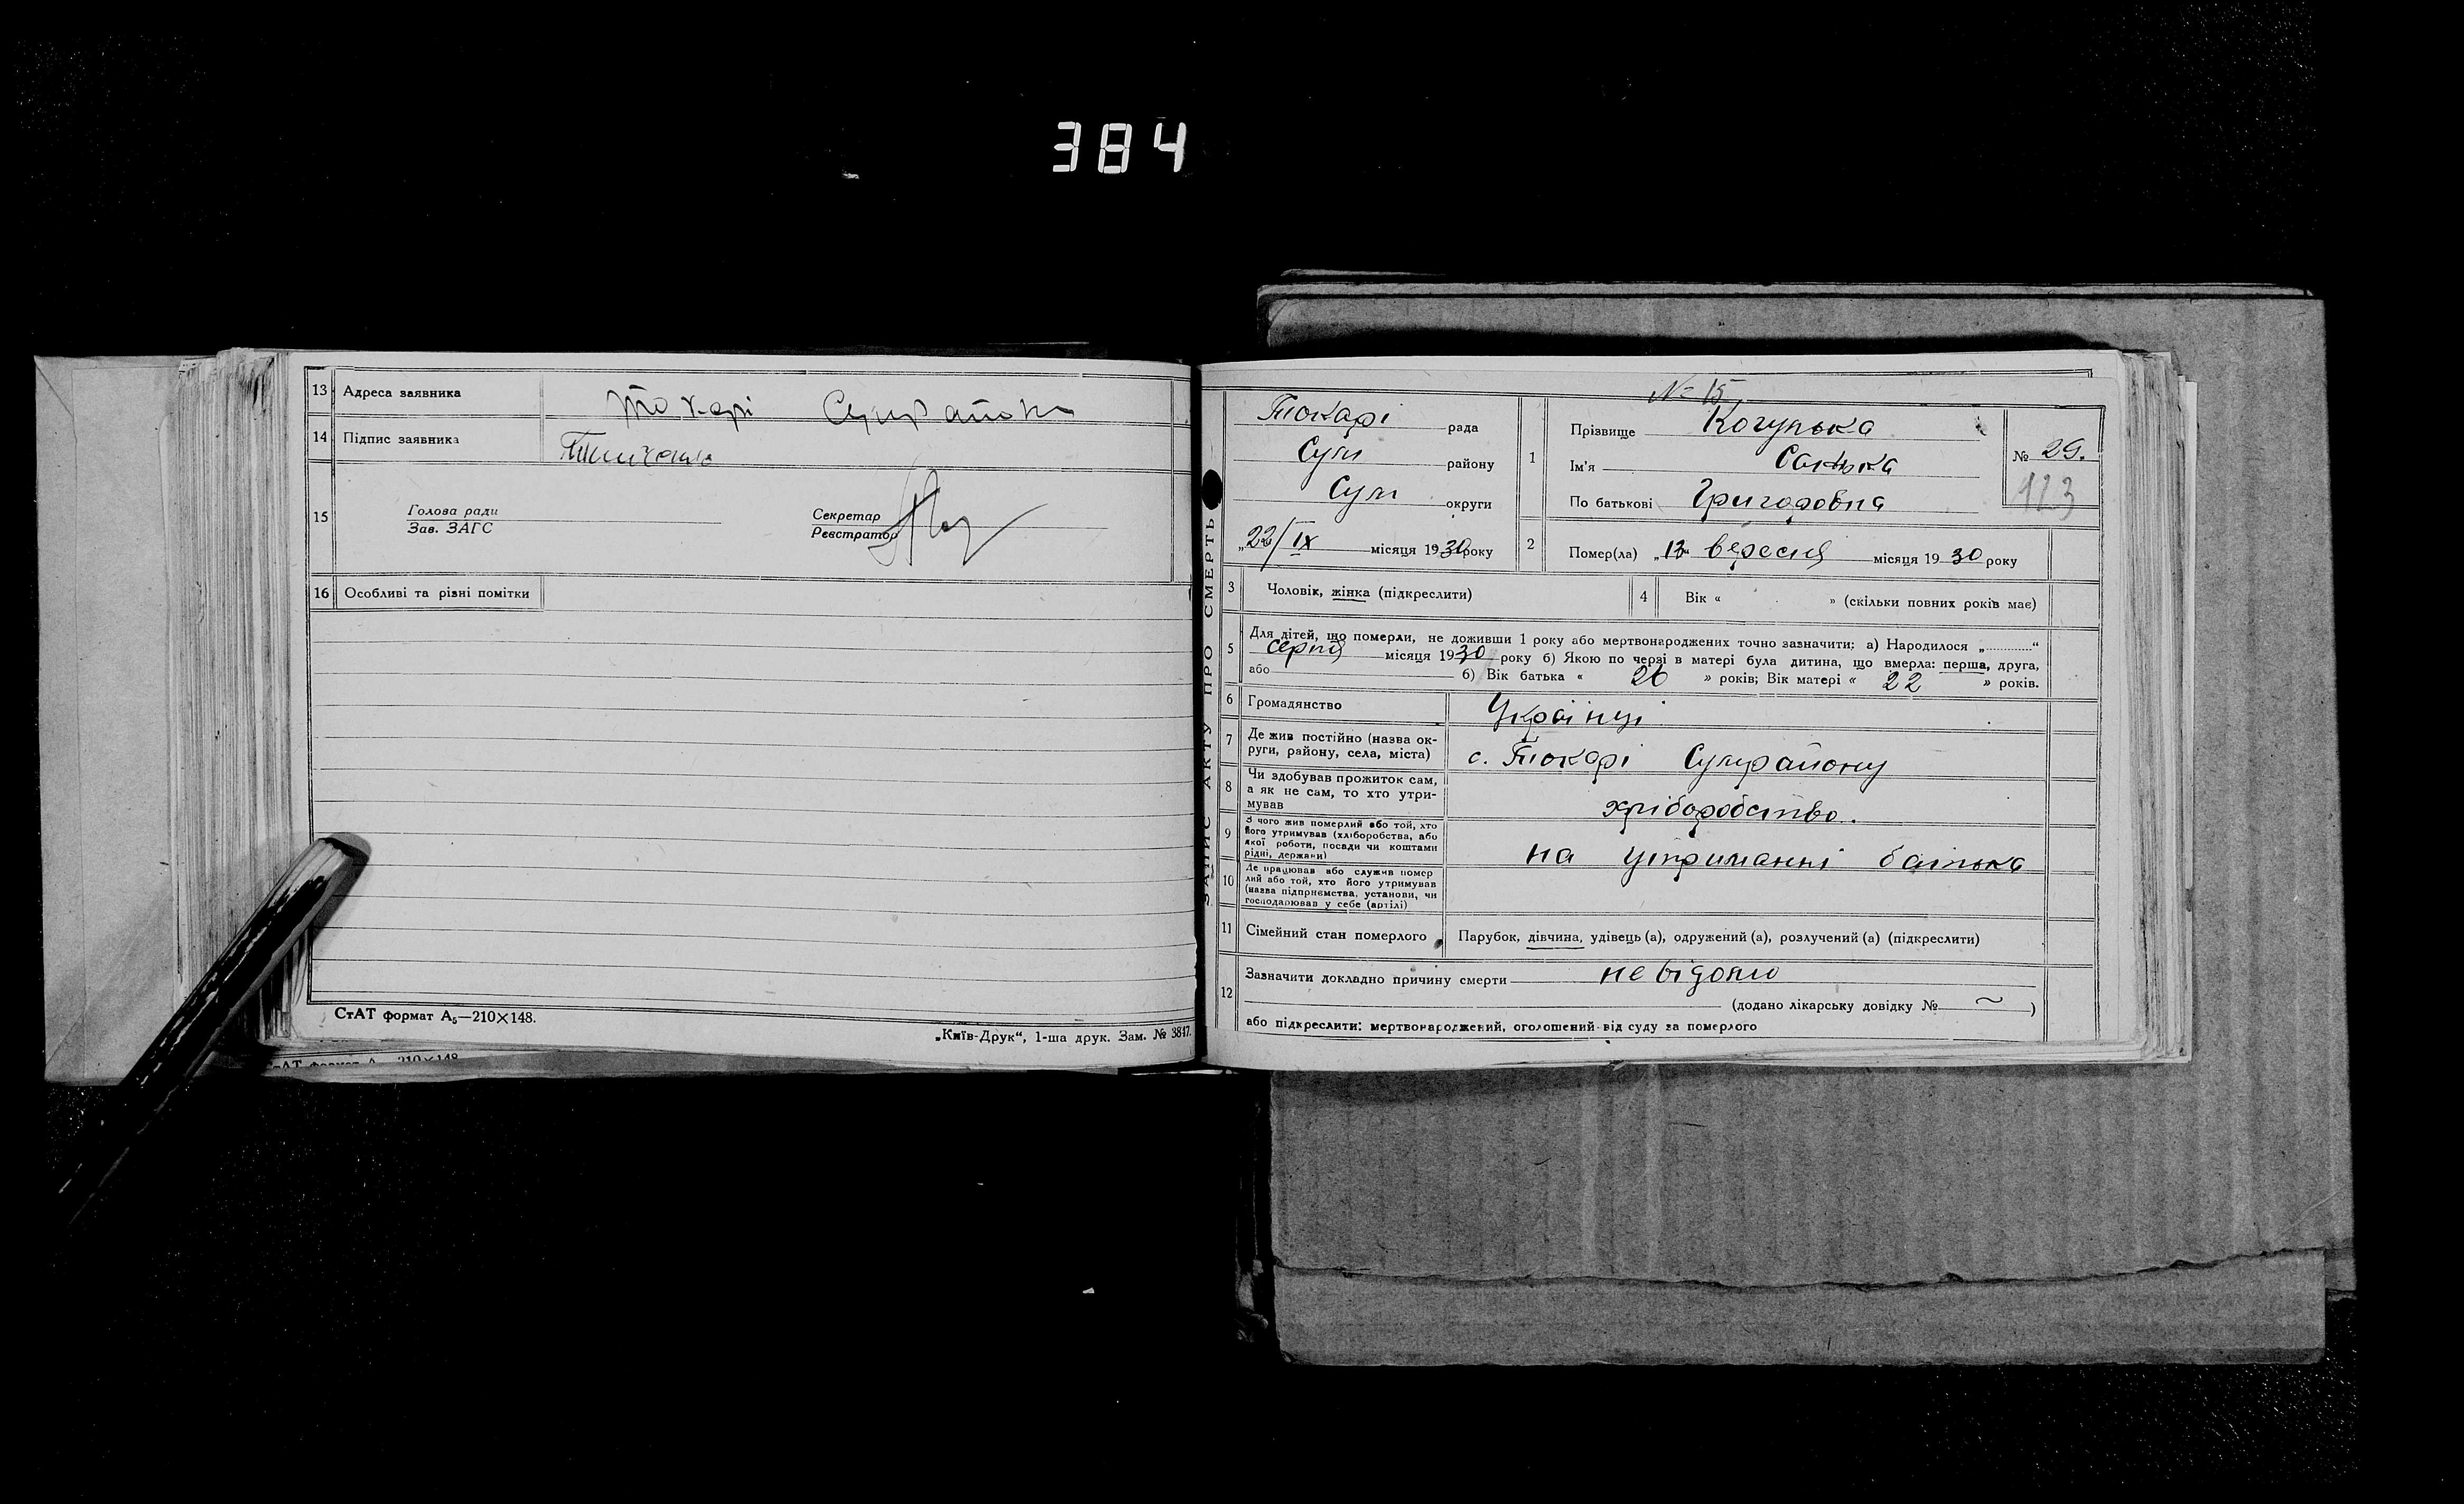 384
13 Адреса заявника Токарі Сумрайону
14 Підпис заявника
15 Голова ради
Зав. ЗАГС
Секретар
Реєстратор
16 Особливі та різні помітки
СтАТ формат А₅—210×148.
„Київ-Друк“, 1-ша друк. Зам. № 3847.
СтАТ формат А 210×148
ЗАПИС АКТУ ПРО СМЕРТЬ
№ 15
Токарі рада
Суми району
Суми округи
„22/IX місяця 1930 року
1 Прізвище Когунька
Ім'я Санька
По батькові Григоровна
№ 29.
113
2 Помер(ла) „13“ вересня місяця 1930 року
3 Чоловік, жінка (підкреслити)
4 Вік « » (скільки повних років має)
5 Для дітей, що померли, не доживши 1 року або мертвонароджених точно зазначити: а) Народилося „.............“
серпня місяця 1930 року б) Якою по черзі в матері була дитина, що вмерла: перша, друга,
або б) Вік батька « 26 » років; Вік матері « 22 » років.
6 Громадянство Українці
7 Де жив постійно (назва ок-
руги, району, села, міста) с. Токарі Сумрайону
8 Чи здобував прожиток сам,
а як не сам, то хто утри-
мував хліборобство.
9 З чого жив померлий або той, хто
його утримував (хліборобства, або
якої роботи, посади чи коштами
рідні, держави) на утриманні батька
10 Де працював або служив помер
лий або той, хто його утримував
(назва підприємства, установи, чи
господарював у себе (артілі)
11 Сімейний стан померлого Парубок, дівчина, удівець (а), одружений (а), розлучений (а) (підкреслити)
12 Зазначити докладно причину смерти невідомо
(додано лікарську довідку № ~ )
або підкреслити: мертвонароджений, оголошений від суду за померлого